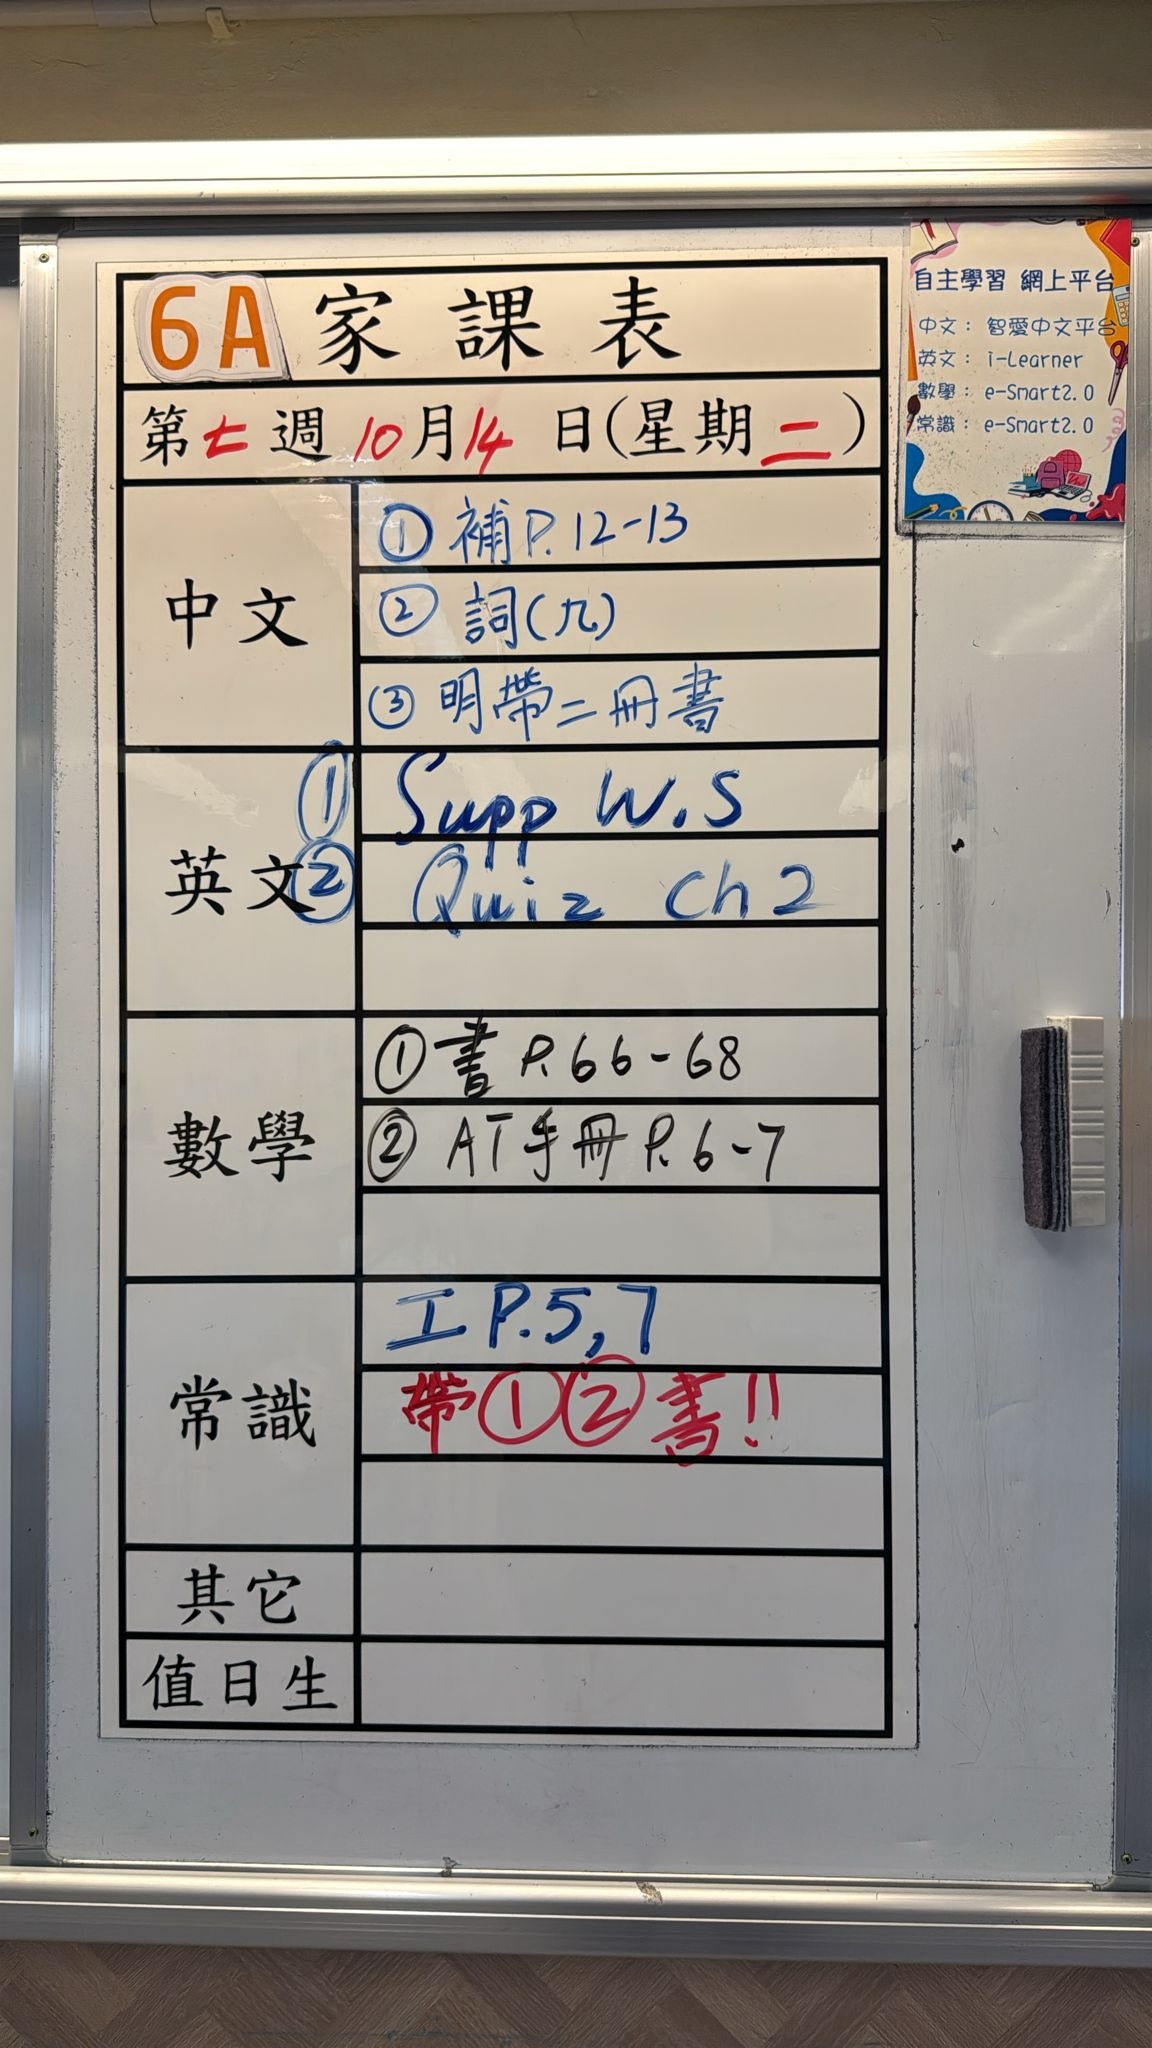 6A 家課表
第七週 10月14日(星期二)
中文
① 補P.12-13
② 詞(九)
③ 明帶二冊書
英文
① Supp W.S
② Quiz Ch 2
數學
① 書 P.66-68
② AT手冊 P.6-7
常識
工 P.5,7
帶①②書!!
其它
值日生
自主學習 網上平台
中文： 智愛中文平台
英文： i-Learner
數學： e-Smart2.0
常識： e-Smart2.0